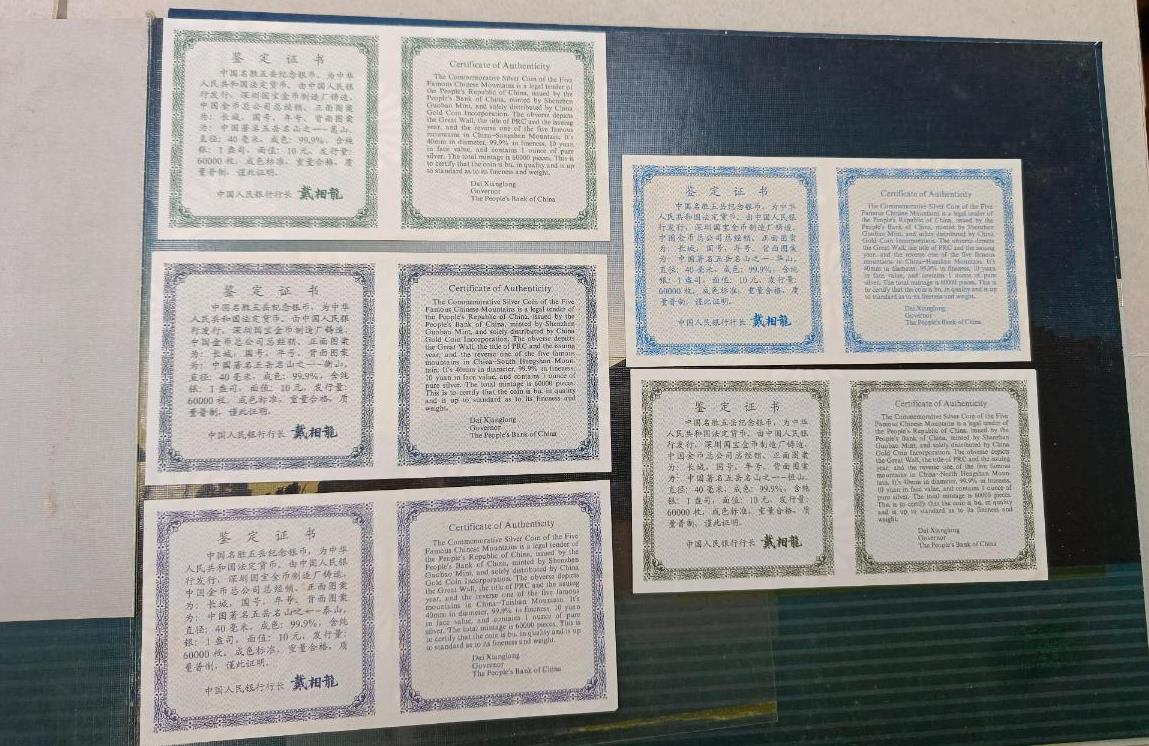 鉴定证书
中国名胜五岳纪念银币，为中华
人民共和国法定货币，由中国人民银
行发行，深圳国宝金币制造厂铸造，
中国金币总公司总经销。正面图案
为：长城，国号，年号，背面图案
为：中国著名五岳名山之一—嵩山，
直径：40毫米，成色：99.9%，含纯
银：1盎司，面值：10元，发行量：
60000枚，成色标准，重量合格，质
量普制，谨此证明。
中国人民银行行长 戴相龍
Certificate of Authenticity
The Commemorative Silver Coin of the Five
Famous Chinese Mountains is a legal tender of
the People's Republic of China, issued by the
People's Bank of China, minted by Shenzhen
Guobao Mint, and solely distributed by China
Gold Coin Incorporation. The obverse depicts
the Great Wall, the title of PRC and the issuing
year, and the reverse one of the five famous
mountains in China-Songshan Mountain. It's
40mm in diameter, 99.9% in fineness, 10 yuan
in face value, and contains 1 ounce of pure
silver. The total mintage is 60000 pieces. This is
to certify that the coin is bu. in quality and is up
to standard as to its fineness and weight.
Dai Xianglong
Governor
The People's Bank of China
鉴定证书
中国名胜五岳纪念银币，为中华
人民共和国法定货币，由中国人民银
行发行，深圳国宝金币制造厂铸造，
中国金币总公司总经销。正面图案
为：长城，国号，年号，背面图案
为：中国著名五岳名山之一—衡山，
直径：40毫米，成色：99.9%，含纯
银：1盎司，面值：10元，发行量：
60000枚，成色标准，重量合格，质
量普制，谨此证明。
中国人民银行行长 戴相龍
Certificate of Authenticity
The Commemorative Silver Coin of the Five
Famous Chinese Mountains is a legal tender of
the People's Republic of China, issued by the
People's Bank of China, minted by Shenzhen
Guobao Mint, and solely distributed by China
Gold Coin Incorporation. The obverse depicts
the Great Wall, the title of PRC and the issuing
year, and the reverse one of the five famous
mountains in China-South Hengshan Moun-
tain. It's 40mm in diameter, 99.9% in fineness,
10 yuan in face value, and contains 1 ounce of
pure silver. The total mintage is 60000 pieces.
This is to certify that the coin is bu. in quality
and is up to standard as to its fineness and
weight.
Dai Xianglong
Governor
The People's Bank of China
鉴定证书
中国名胜五岳纪念银币，为中华
人民共和国法定货币，由中国人民银
行发行，深圳国宝金币制造厂铸造，
中国金币总公司总经销。正面图案
为：长城，国号，年号，背面图案
为：中国著名五岳名山之一—泰山，
直径：40毫米，成色：99.9%，含纯
银：1盎司，面值：10元，发行量：
60000枚，成色标准，重量合格，质
量普制，谨此证明。
中国人民银行行长 戴相龍
Certificate of Authenticity
The Commemorative Silver Coin of the Five
Famous Chinese Mountains is a legal tender of
the People's Republic of China, issued by the
People's Bank of China, minted by Shenzhen
Guobao Mint, and solely distributed by China
Gold Coin Incorporation. The obverse depicts
the Great Wall, the title of PRC and the issuing
year, and the reverse one of the five famous
mountains in China-Taishan Mountain. It's
40mm in diameter, 99.9% in fineness, 10 yuan
in face value, and contains 1 ounce of pure
silver. The total mintage is 60000 pieces. This is
to certify that the coin is bu. in quality and is up
to standard as to its fineness and weight.
Dai Xianglong
Governor
The People's Bank of China
鉴定证书
中国名胜五岳纪念银币，为中华
人民共和国法定货币，由中国人民银
行发行，深圳国宝金币制造厂铸造，
中国金币总公司总经销。正面图案
为：长城，国号，年号，背面图案
为：中国著名五岳名山之一—华山，
直径：40毫米，成色：99.9%，含纯
银：1盎司，面值：10元，发行量：
60000枚，成色标准，重量合格，质
量普制，谨此证明。
中国人民银行行长 戴相龍
Certificate of Authenticity
The Commemorative Silver Coin of the Five
Famous Chinese Mountains is a legal tender of
the People's Republic of China, issued by the
People's Bank of China, minted by Shenzhen
Guobao Mint, and solely distributed by China
Gold Coin Incorporation. The obverse depicts
the Great Wall, the title of PRC and the issuing
year, and the reverse one of the five famous
mountains in China-Huashan Mountain. It's
40mm in diameter, 99.9% in fineness, 10 yuan
in face value, and contains 1 ounce of pure
silver. The total mintage is 60000 pieces. This is
to certify that the coin is bu. in quality and is up
to standard as to its fineness and weight.
Dai Xianglong
Governor
The People's Bank of China
鉴定证书
中国名胜五岳纪念银币，为中华
人民共和国法定货币，由中国人民银
行发行，深圳国宝金币制造厂铸造，
中国金币总公司总经销。正面图案
为：长城，国号，年号，背面图案
为：中国著名五岳名山之一—恒山，
直径：40毫米，成色：99.9%，含纯
银：1盎司，面值：10元，发行量：
60000枚，成色标准，重量合格，质
量普制，谨此证明。
中国人民银行行长 戴相龍
Certificate of Authenticity
The Commemorative Silver Coin of the Five
Famous Chinese Mountains is a legal tender of
the People's Republic of China, issued by the
People's Bank of China, minted by Shenzhen
Guobao Mint, and solely distributed by China
Gold Coin Incorporation. The obverse depicts
the Great Wall, the title of PRC and the issuing
year, and the reverse one of the five famous
mountains in China-North Hengshan Moun-
tain. It's 40mm in diameter, 99.9% in fineness,
10 yuan in face value, and contains 1 ounce of
pure silver. The total mintage is 60000 pieces.
This is to certify that the coin is bu. in quality
and is up to standard as to its fineness and
weight.
Dai Xianglong
Governor
The People's Bank of China